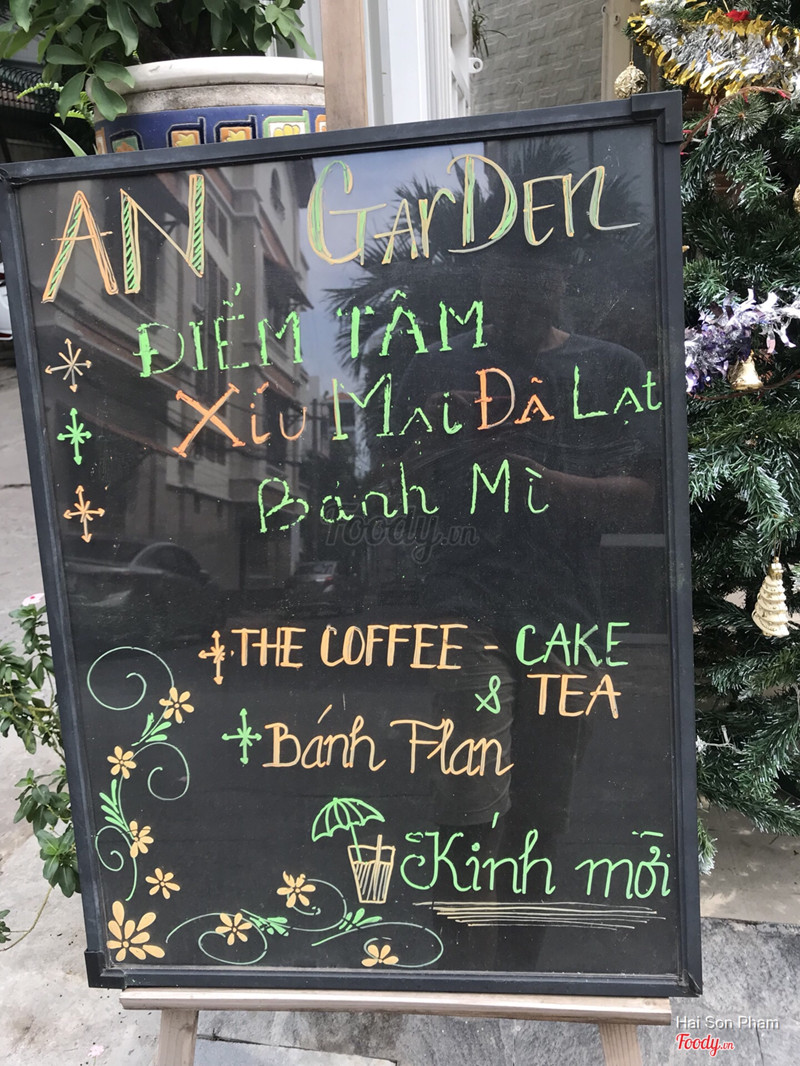 AN GarDEN
ĐIỂM TÂM
XÍU MẠI ĐÃ LẠT
Bánh Mì
Foody.vn
THE COFFEE - CAKE
& TEA
Bánh Flan
Kính mời
Hai Son Pham
Foody.vn